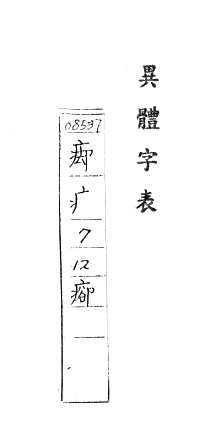 異體字表
08537
疒
7
12